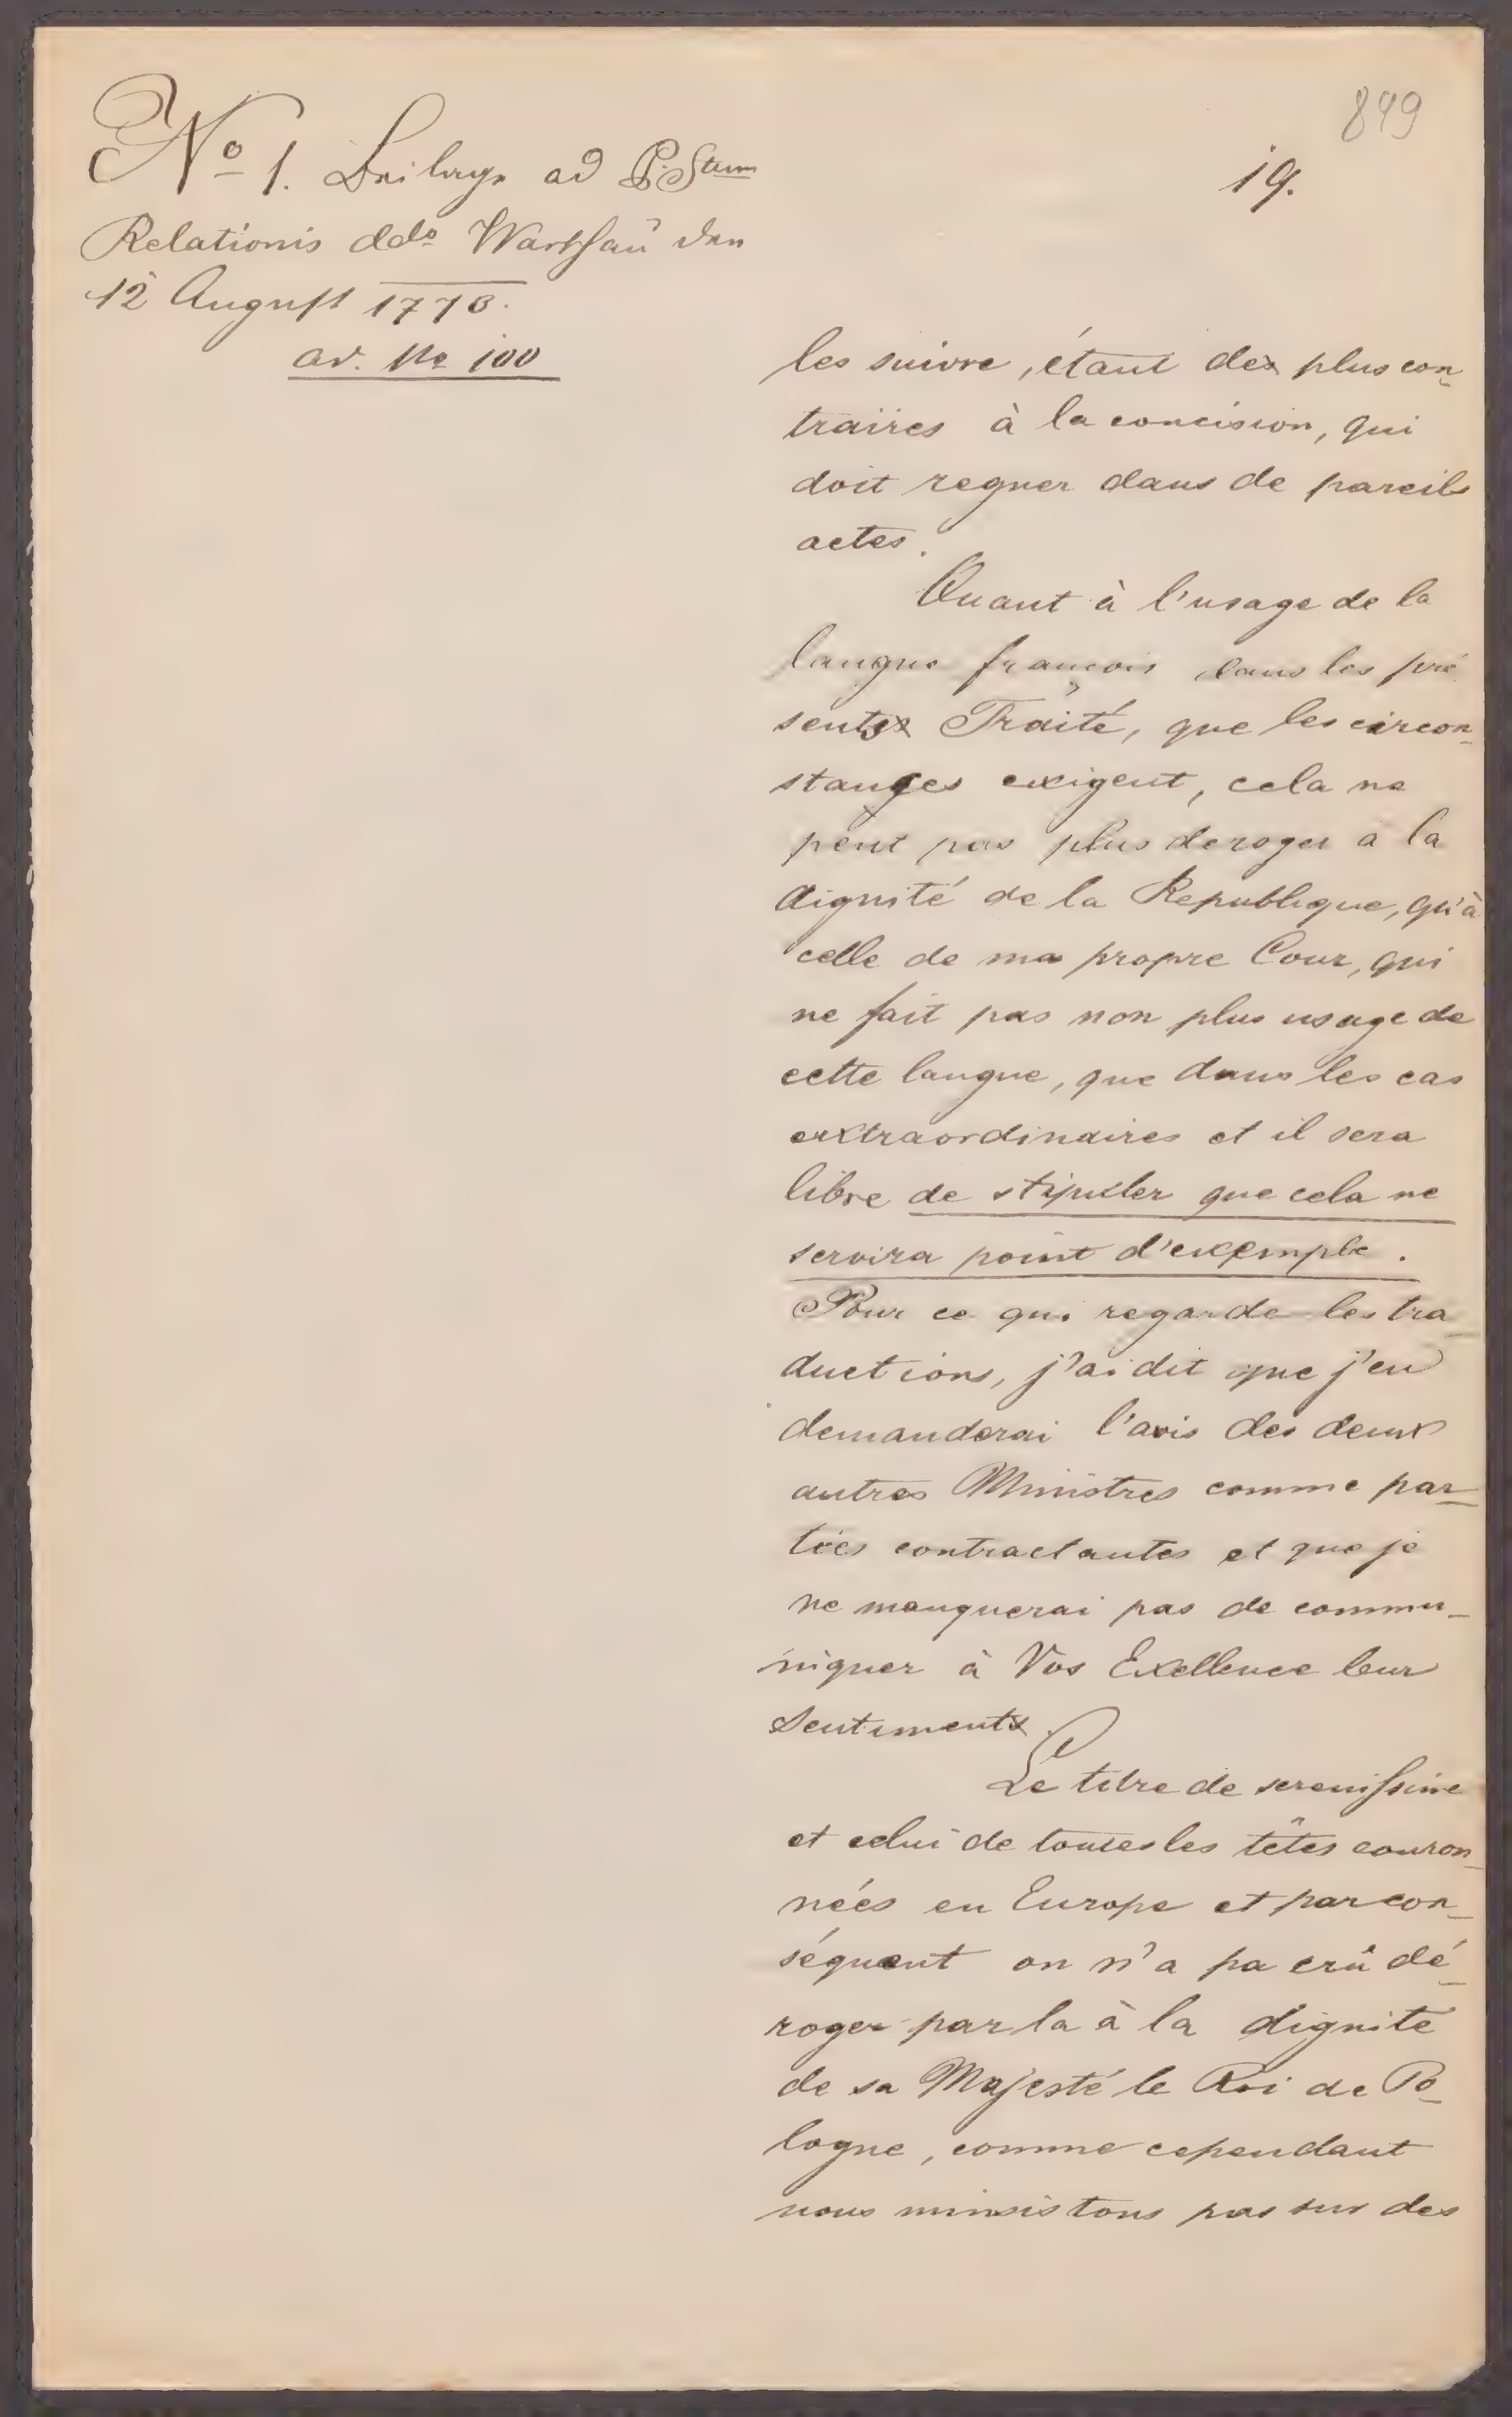 849
19.
No 1. Beilage ad P. Stum
Relationis ddo Warschau den
12 August 1773.
ad. No 100
les suivre, étant des plus con-
traires à la concision, qui
doit regner dans de pareils
actes.
Quant à l'usage de la
langue françois dans les pré
sents Traité, que les circon-
stances exigent, cela ne
peut pas plus deroger a la
dignité de la Republique, qu'à
celle de ma propre Cour, qui
ne fait pas non plus usage de
cette langue, que dans les cas
extraordinaires et il sera
libre de stipuler que cela ne
servira point d'exemple.
Pour ce qui regarde les tra
ductions, j'ai dit que j'en
demanderai l'avis des deux
autres Ministres comme par-
ties contractantes et que je
ne manquerai pas de commu-
niquer à Vos Exellence leur
sentiments.
Le titre de serenissime
et celui de toutes les têtes couron-
nées en Europe et par con-
séquent on n'a pa crû dé-
roger par la à la dignité
de sa Majesté le Roi de Po-
logne, comme cependant
nous n'insistons pas sur des